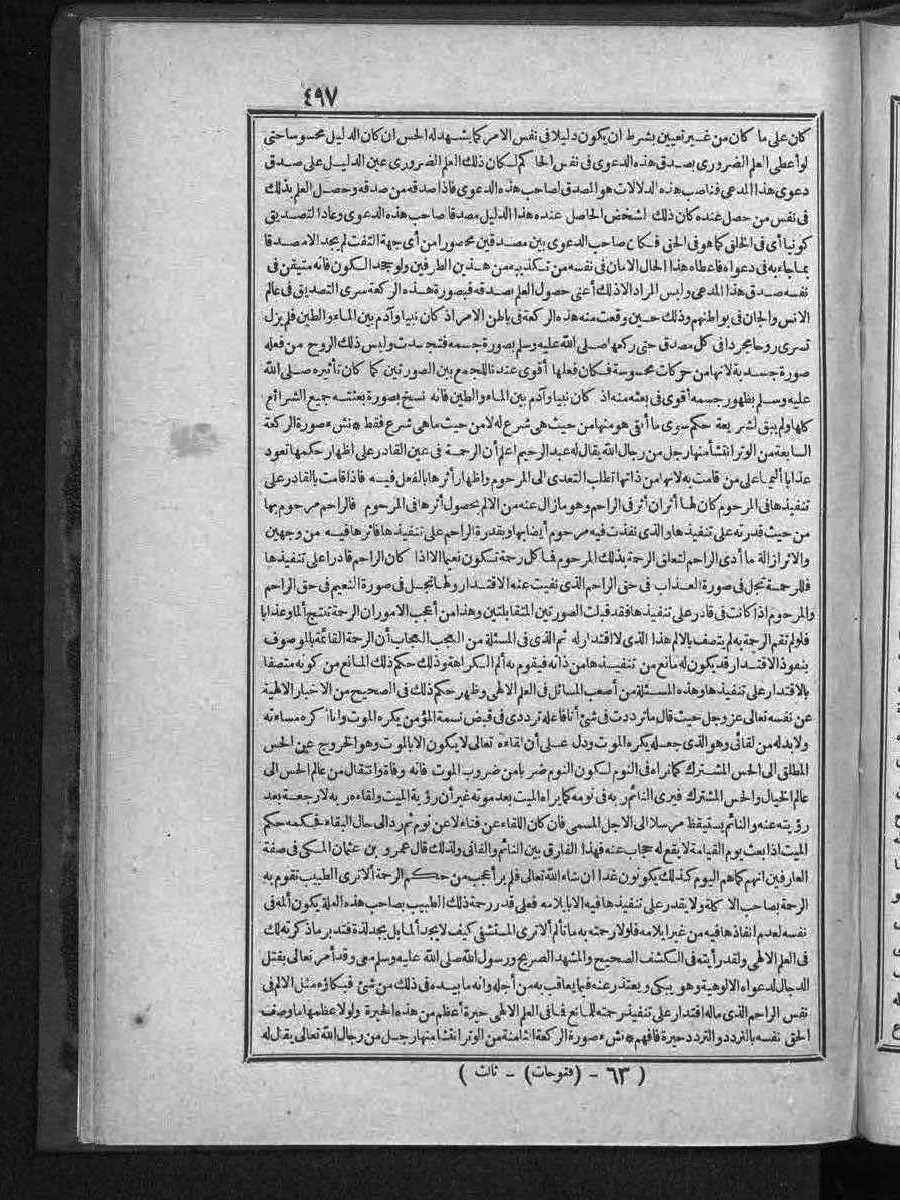 ٤٩٧
كان على ما كان من غير تعيين بشرط ان يكون دليلا فى نفس الامر كما يشهد له الحس ان كان الدليل محسوسا حتى
لو أعطى العلم الضرورى بصدق هذه الدعوى فى نفس الحاكم لكان ذلك العلم الضرورى عين الدليل على صدق
دعوى هذا المدعى فناصب هذه الدلالات هو المصدق لصاحب هذه الدعوى فاذا صدقه من صدقه وحصل العلم بذلك
فى نفس من حصل عنده كان ذلك الشخص الحاصل عنده هذا الدليل مصدقا صاحب هذه الدعوى وعاد التصديق
كونيا أى فى الخلق كما هو فى الحق فكان صاحب الدعوى بين مصدقين محصورا من أى جهة التفت لم يجد الا مصدقا
بما جاء به فى دعواه فاعطاه هذا الحال الامان فى نفسه من تكذيبه من هذين الطرفين ولو جحد الكون فانه متيقن فى
نفسه صدق هذا المدعى وليس المراد الا ذلك أعنى حصول العلم بصدقه فبصورة هذه الركعة سرى التصديق فى عالم
الانس والجان فى بواطنهم وذلك حين وقعت منه هذه الركعة فى باطن الامر اذ كان نبيا وآدم بين الماء والطين فلم يزل
تسرى روحا مجردا فى كل مصدق حتى ركعها صلى الله عليه وسلم بصورة جسمه فتجسدت وليس ذلك الروح من فعله
صورة جسدية لانها من حركات محسوسة فكان فعلها أقوى عندنا للجمع بين الصورتين كما كان تأثيره صلى الله
عليه وسلم بظهور جسمه أقوى فى بعثه منه اذ كان نبيا وآدم بين الماء والطين فانه نسخ بصورة بعثته جميع الشرائع
كلها ولم يبق لشريعة حكم سوى ما أبقى هو منها من حيث هى شرع له لا من حيث ما هى شرع فقط * نش * صورة الركعة
السابعة من الوتر انتشأ منها رجل من رجال الله يقال له عبد الرحيم اعلم أن الرحمة فى عين القادر على اظهار حكمها تعود
عذابا أليما على من قامت به لانها من ذاتها تطلب التعدى الى المرحوم واظهار أثرها بالفعل فيه فاذا قامت بالقادر على
تنفيذها فى المرحوم كان لها أثران أثر فى الراحم وهو ما زال عنه من الالم بحصول أثرها فى المرحوم فالراحم مرحوم بها
من حيث قدرته على تنفيذها والذى نفذت فيه مرحوم أيضا بها وبقدرة الراحم على تنفيذها فاثرها فيه من وجهين
والاثر ازالة ما أدى الراحم لتعلق الرحمة بذلك المرحوم فما كل رحمة تكون نعيما الا اذا كان الراحم قادرا على تنفيذها
فللرحمة تجل فى صورة العذاب فى حق الراحم الذى نفيت عنه الاقتدار ولها تجل فى صورة النعيم فى حق الراحم
والمرحوم اذا كانت فى قادر على تنفيذها فقد قبلت الصورتين المتقابلتين وهذا من أعجب الامور ان الرحمة تنتج ألما وعذابا
فلو لم تقم الرحمة به لم يتصف بالالم هذا الذى لا اقتدار له ثم الذى فى المسئلة من العجب العجاب أن الرحمة القائمة بالموصوف
بنفوذ الاقتدار قد يكون له مانع من تنفيذها من ذاته فيقوم به ألم الكراهة وذلك حكم ذلك المانع من كونه متصفا
بالاقتدار على تنفيذها وهذه المسئلة من أصعب المسائل فى العلم الالهى وظهر حكم ذلك فى الصحيح من الاخبار الالهية
عن نفسه تعالى عز وجل حيث قال ما ترددت فى شئ أنا فاعله ترددى فى قبض نسمة المؤمن يكره الموت وانا اكره مساءته
ولا بد له من لقائى وهو الذى جعله يكره الموت ودل على أن لقاءه تعالى لا يكون الا بالموت وهو الخروج عن الحس
المطلق الى الحس المشترك كما نراه فى النوم لكون النوم ضربا من ضروب الموت فانه وفاة وانتقال من عالم الحس الى
عالم الخيال والحس المشترك فيرى النائم ربه فى نومه كما يراه الميت بعد موته غير أن رؤية الميت ولقاءه ربه لا رجعة بعد
رؤيته عنه والنائم يستيقظ مرسلا الى الاجل المسمى فان كان اللقاء عن فناء لا عن نوم ثم رد الى حال البقاء فحكمه حكم
الميت اذا بعث يوم القيامة لا يقع له حجاب عنه فهذا الفارق بين النائم والفانى ولذلك قال عمرو بن عثمان المكى فى صفة
العارفين انهم كما هم اليوم كذلك يكونون غدا ان شاء الله تعالى فلم ير أعجب من حكم الرحمة ألا ترى الطبيب تقوم به
الرحمة بصاحب الاكلة ولا يقدر على تنفيذها فيه الا بايلامه فعلى قدر رحمة ذلك الطبيب بصاحب هذه العلة يكون ألمه فى
نفسه لعدم انفاذها فيه من غير ايلامه فلولا رحمته به ما تألم ألا ترى المستشفى كيف لا يجد ألما بل يجد لذة فتدبر ما ذكرته لك
فى العلم الالهى ولقد رأيته فى الكشف الصحيح والمشهد الصريح ورسول الله صلى الله عليه وسلم معى وقد أمر تعالى بقتل
الدجال لدعواه الالوهية وهو يبكى ويعتذر عنه فيما يعاقب به من أجله وانه ما بيده فى ذلك من شئ فبكاؤه مثل الالم فى
نفس الراحم الذى ماله اقتدار على تنفيذ رحمته للمانع فما فى العلم الالهى حيرة أعظم من هذه الحيرة ولولا عظمها ما وصف
الحق نفسه بالتردد والتردد حيرة فافهم * نش * صورة الركعة الثامنة من الوتر انتشأ منها رجل من رجال الله تعالى يقال له
( ٦٣ - (فتوحات) - ثالث )